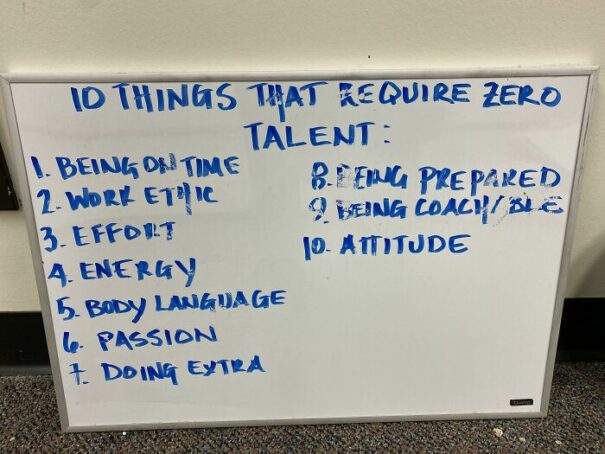 10 THINGS THAT REQUIRE ZERO
TALENT:
1. BEING ON TIME
2. WORK ETHIC
3. EFFORT
4. ENERGY
5. BODY LANGUAGE
6. PASSION
7. DOING EXTRA
8. BEING PREPARED
9. BEING COACHABLE
10. ATTITUDE